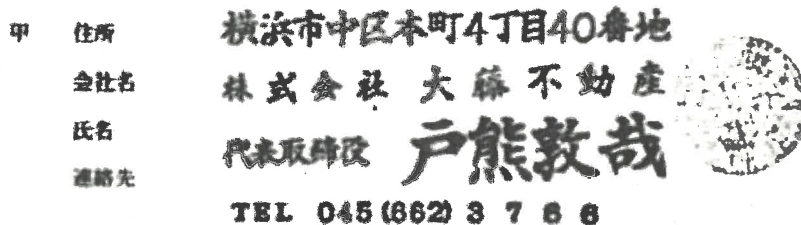 甲 住所 横浜市中区本町4丁目40番地
会社名 株式会社 大藤不動産
氏名 代表取締役 戸熊敦哉
連絡先
TEL 045(662)3766